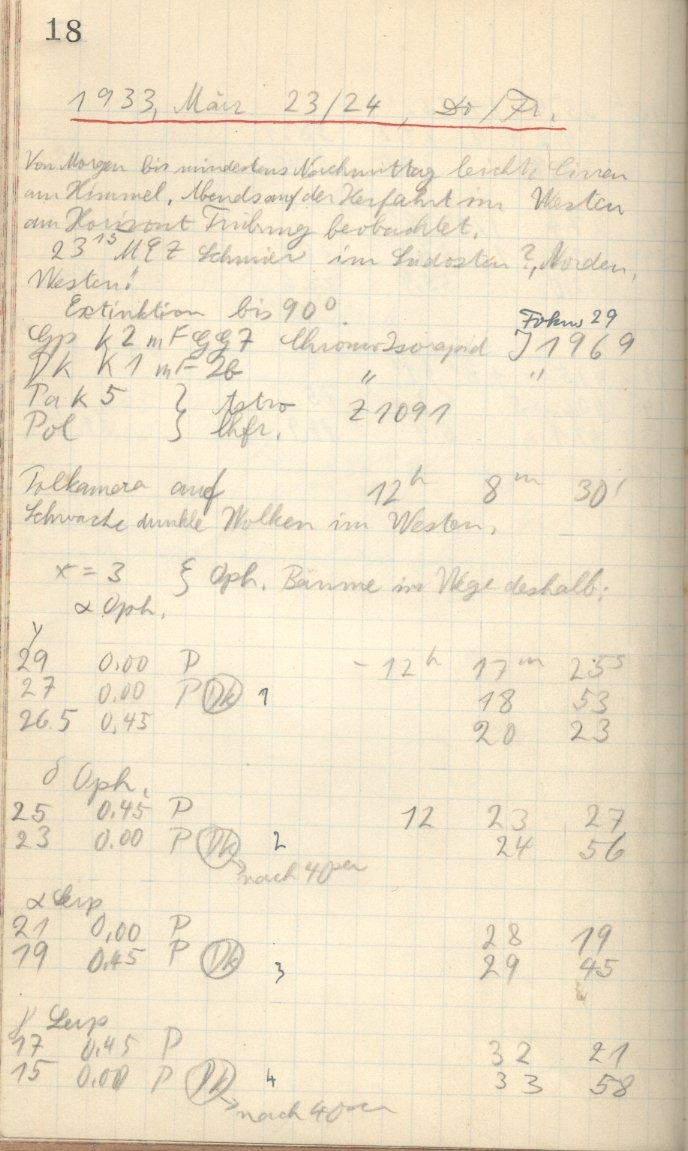 18
1933, März 23/24, Do/Fr.
Von Morgen bis mindestens Nachmittag leicht Cirren
am Himmel. Abends auf der Herfahrt im Westen
am Horizont Trübung beobachtet.
23 15 MEZ Schmier im Südosten ?, Norden,
Westen!
Extinktion bis 90°
Fokus 29
Gp K2 mF GG7 Chromo Isorapid J1969
Dk K1 mF 2b " "
Pa K5 } Astro Z1091
Pol }
auf 12 h 8 m 30
Schwache dunkle Wolken im Westen.
x = 3 ξ Oph. Bäume im Wege deshalb:
α Oph.
y
29 0.00 P - 12 h 17 m 25 s
27 0.00 P Dk 1 18 53
26.5 0,45 20 23
δ Oph.
25 0.45 P 12 23 27
23 0.00 P Dk 2 24 56
nach 40 sec
α Serp
21 0,00 P 28 19
19 0.45 P Dk 3 29 45
Serp
17 0.45 P 32 21
15 0.00 P Dk 4 33 58
nach 40 sec